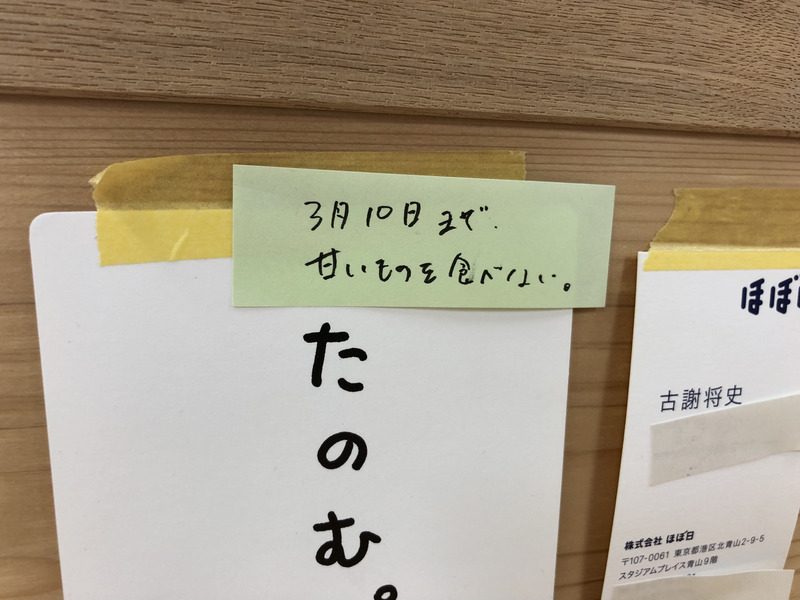 3月10日まで
甘いものを食べない。
たのむ。
ほぼ
古謝将史
株式会社 ほぼ日
〒107-0061 東京都港区北青山2-9-5
スタジアムプレイス青山9階